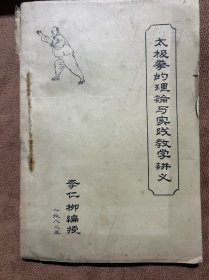 太极拳的理论与实践教学讲义
李仁柳编授
一九八三年